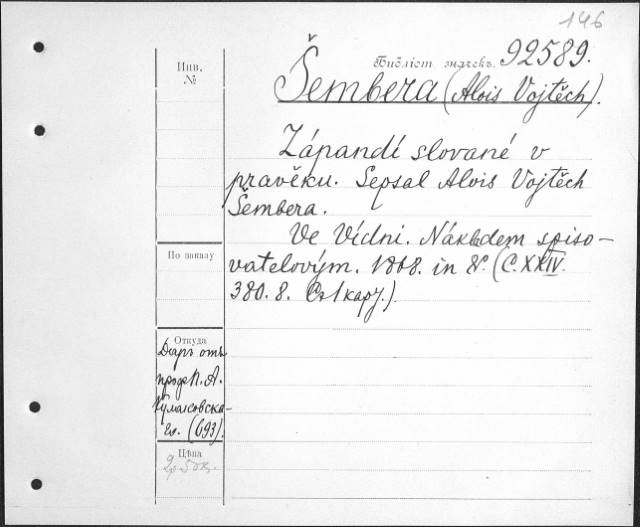 146
Инв.
№
Библіот. значекъ. 92589.
Šembera (Alois Vojtěch).
Zápandí slované v
pravěku. Sepsal Alois Vojtěch
Šembera.
Ve Vídni. Nákladem spiso-
По заказу
vatelovým. 1868. in 8°. (C. XXIV.
380. 8. Съ 1 карт.)
Откуда
Даръ отъ
проф. П. А.
Кулаковска-
го. (693).
Цѣна
2р. 50к.